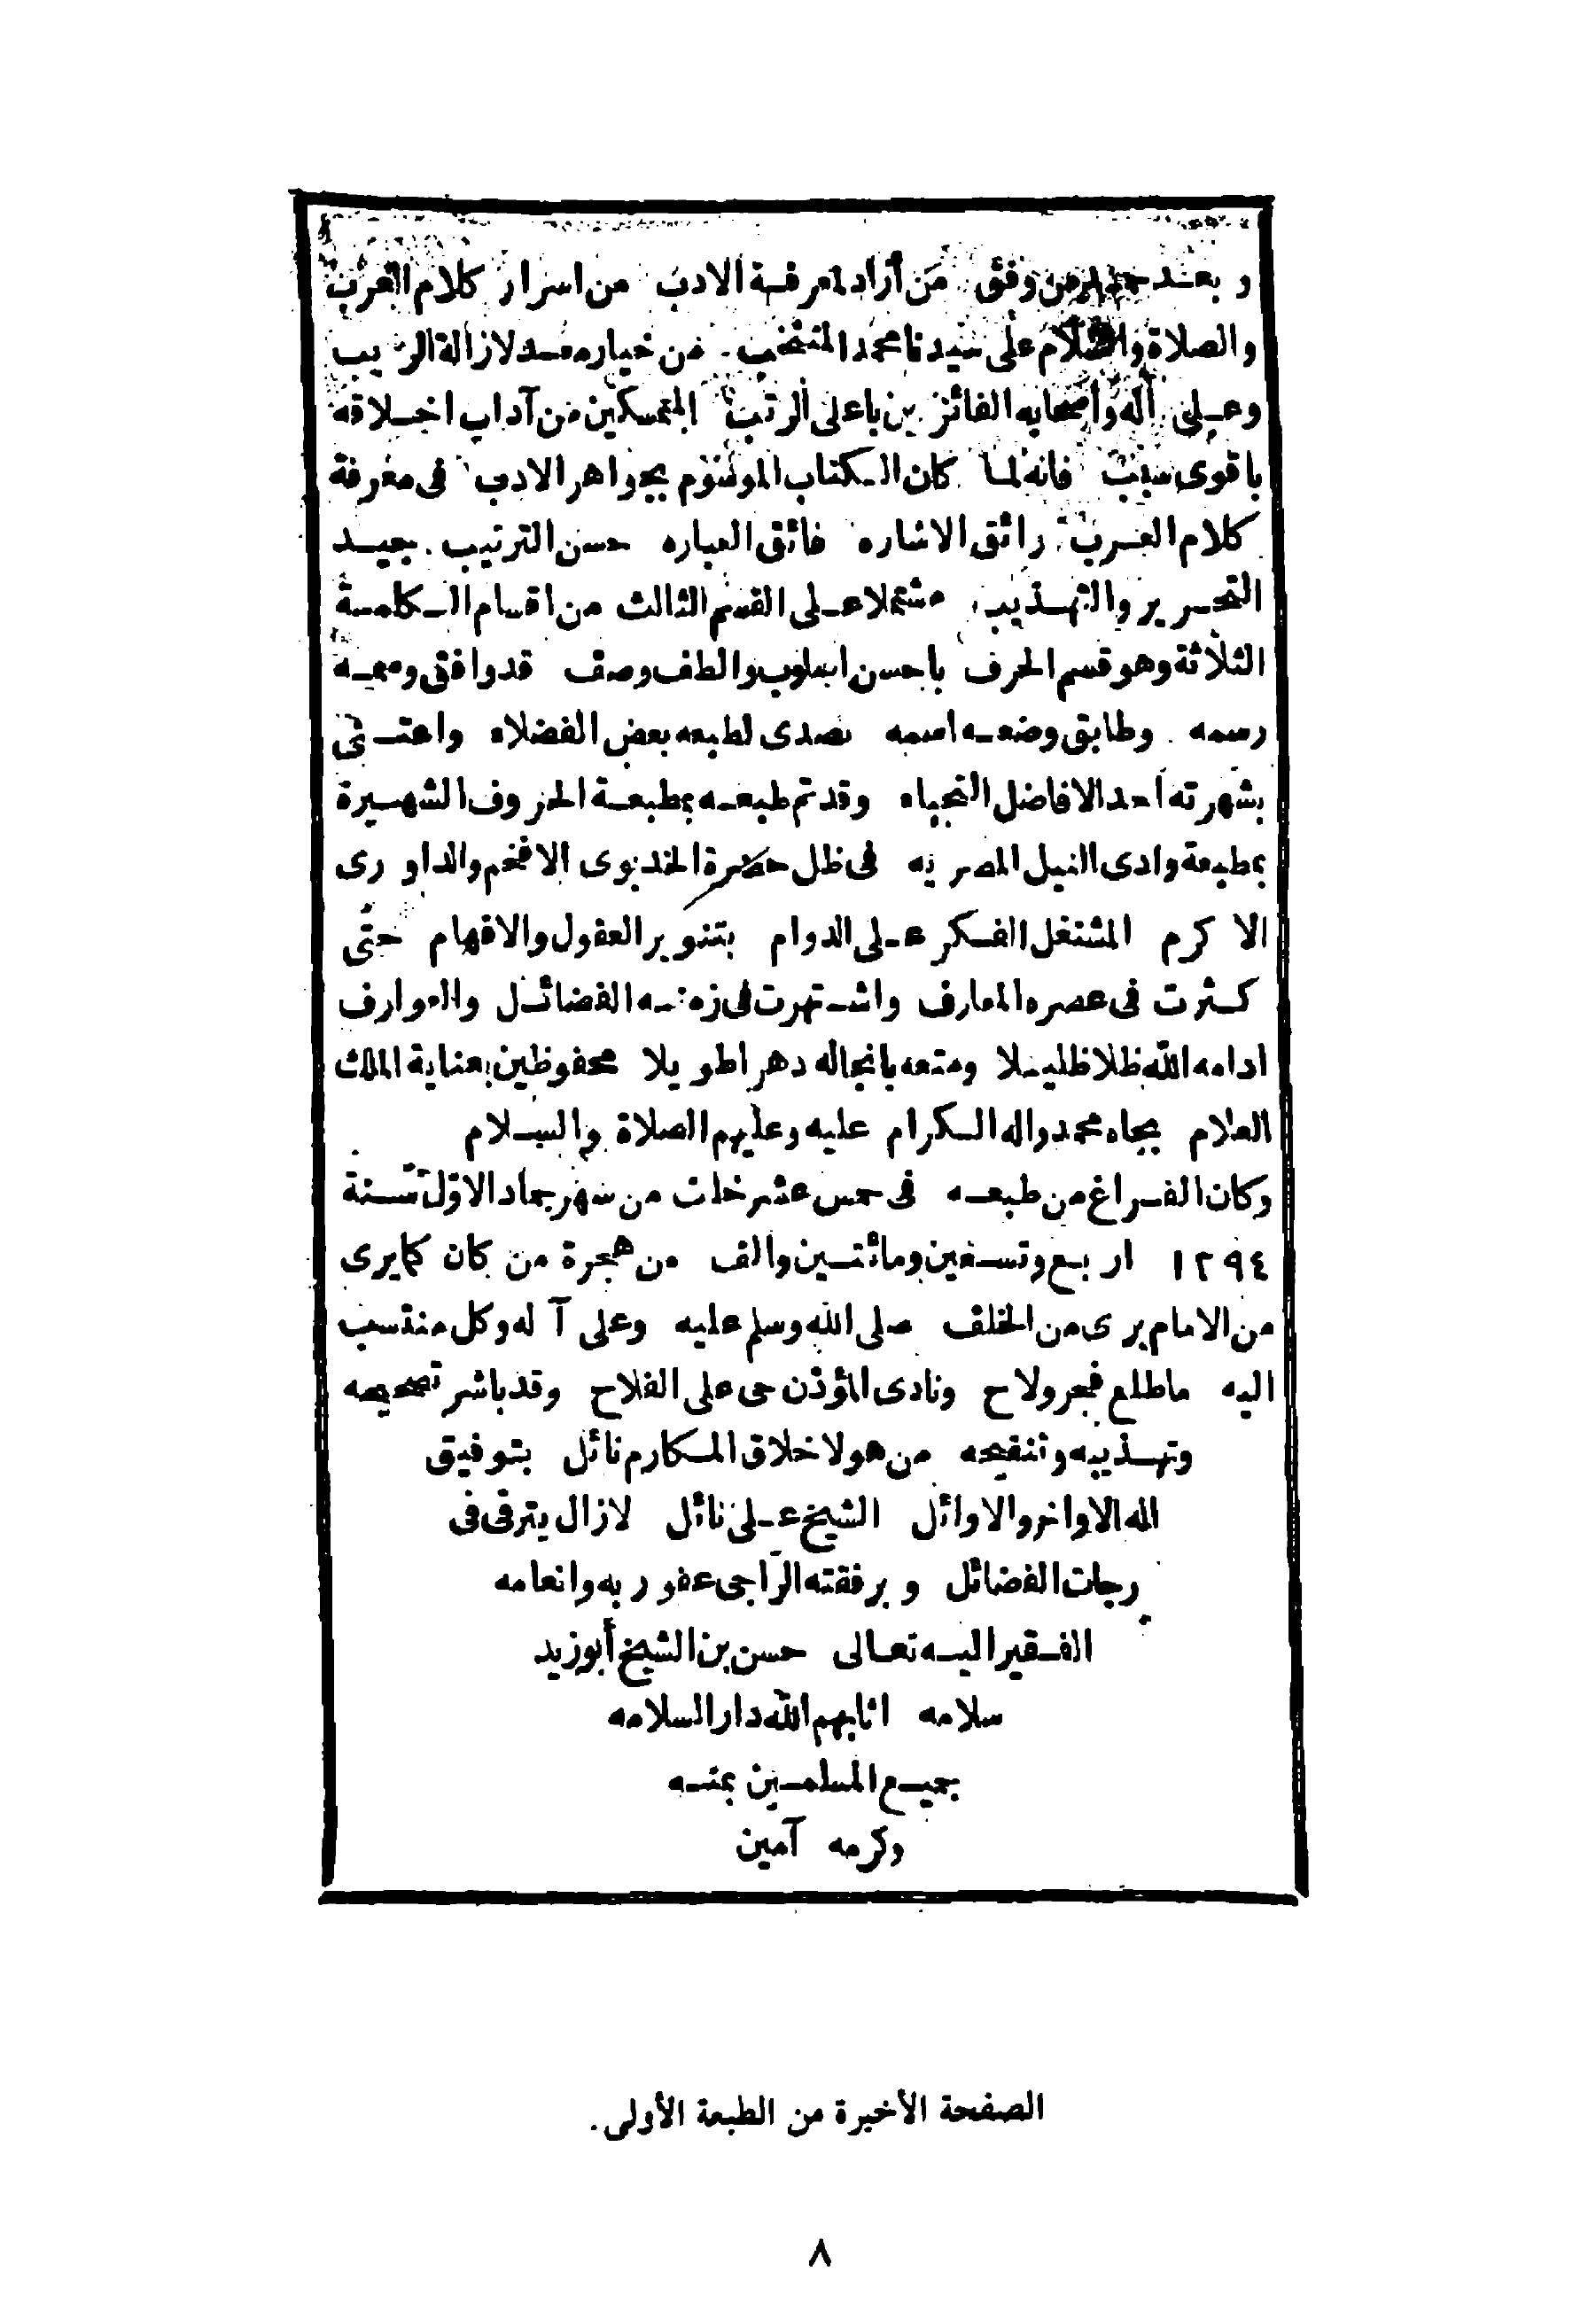 وبعد حمد من وفق من أراد لمعرفة الادب من اسرار كلام العرب
والصلاة والسلام على سيدنا محمد المنتخب من خيار معد لازالة الريب
وعلى آله وأصحابه الفائزين باعلى الرتب المتمسكين من آداب اخلاقه
باقوى سبب فانه لما كان الكتاب الموسوم بجواهر الادب فى معرفة
كلام العرب رائق الاشاره فائق العباره حسن الترتيب بجيد
التحرير والتهذيب مشتملا على القسم الثالث من اقسام الكلمة
الثلاثة وهو قسم الحرف باحسن اسلوب والطف وصف قد وافق وسمه
رسمه وطابق وضعه اسمه تصدى لطبعه بعض الفضلاء واعتنى
بشهرته احد الافاضل النجباء وقد تم طبعه بمطبعة الحروف الشهيرة
بمطبعة وادى النيل المصريه فى ظل حضرة الخديوى الافخم والداورى
الاكرم المشتغل الفكر على الدوام بتنوير العقول والافهام حتى
كثرت فى عصره المعارف واشتهرت فى زمنه الفضائل والعوارف
ادامه الله ظلا ظليلا ومتعه بانجاله دهرا طويلا محفوظين بعناية الملك
العلام بجاه محمد واله الكرام عليه وعليهم الصلاة والسلام
وكان الفراغ من طبعه فى خمس عشر خلت من شهر جماد الاول سنة
١٢٩٤ اربع وتسعين ومائتين والف من هجرة من كان كما يرى
من الامام يرى من الخلف صلى الله وسلم عليه وعلى آله وكل منتسب
اليه ماطلع فجر ولاح ونادى المؤذن حى على الفلاح وقد باشر تصحيحه
وتهذيبه وتنقيحه من هو لاخلاق المكارم نائل بتوفيق
اله الاواخر والاوائل الشيخ على نائل لازال يترقى فى
درجات الفضائل وبرفقته الراجى عفو ربه وانعامه
الفقير اليه تعالى حسن بن الشيخ أبوزيد
سلامه اثابهم الله دار السلامه
بجميع المسلمين بمنه
وكرمه آمين
الصفحة الأخيرة من الطبعة الأولى.
٨